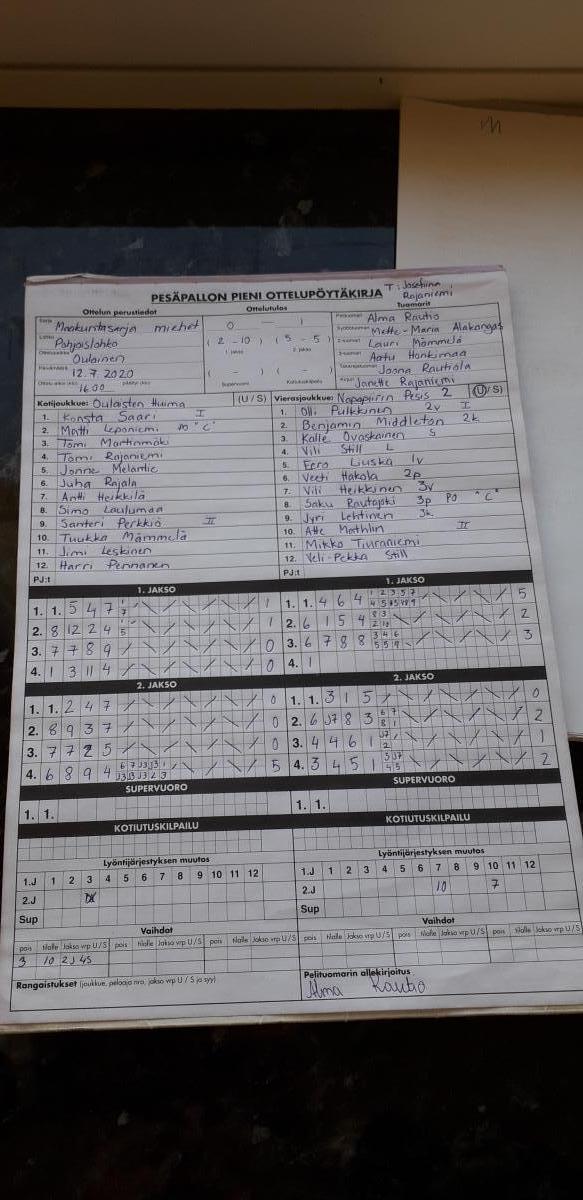 PESÄPALLON PIENI OTTELUPÖYTÄKIRJA
T: Josefiina Rajaniemi
Ottelun perustiedot Ottelutulos Tuomarit
Sarja Maakuntasarja miehet 0 — 1 Pelituomari Alma Rautio
Lohko Pohjoislohko ( 2 - 10 ) ( 5 - 5 ) Syöttötuomari Mette-Maria Alakangas
1. jakso 2. jakso 2-tuomari Lauri Mämmelä
Oulainen 3-tuomari Aatu Honkimaa
Päivämäärä 12.7.2020 ( - ) ( - ) Takarajatuomari Joona Rautiola
16.00 Supervuoro Kotiutuskilpailu Kirjuri Janette Rajaniemi
Kotijoukkue: Oulaisten Huima (U / S) Vierasjoukkue: Napapiirin Pesis 2 (U / S)
1. Konsta Saari I
2. Matti Leponiemi "C"
3. Tomi Martinmäki
4. Tomi Rajaniemi
5. Jonne Melantie
6. Juha Rajala
7. Antti Heikkilä
8. Simo Laulumaa
9. Santeri Perkkiö II
10. Tuukka Mämmelä
11. Jimi Leskinen
12. Harri Pennanen
PJ:t
1. Olli Pulkkinen 2v I
2. Benjamin Middleton 2k
3. Kalle Ovaskainen S
4. Vili Still L
5. Eero Liuska 1v
6. Veeti Hakola 2p
7. Vili Heikkinen 3v
8. Saku Rautajoki 3p PO "C"
9. Jyri Lehtinen 3k
10. Atte Mathlin II
11. Mikko Tiuraniemi
12. Veli-Pekka Still
PJ:t
1. JAKSO
1. 1. 5 4 7 1
2. 8 12 2 4 1
3. 7 7 8 9 0
4. 1 3 11 4 0
1. JAKSO
1. 1. 4 6 4 5
2. 6 1 5 4 2
3. 6 7 8 8 3
4. 1
2. JAKSO
1. 1. 2 4 7 0
2. 8 9 3 7 0
3. 7 7 2 5 0
4. 6 8 9 4 5
2. JAKSO
1. 1. 3 1 5 0
2. 6 J7 8 3 2
3. 4 4 6 1 1
4. 3 4 5 1 2
SUPERVUORO SUPERVUORO
1. 1. 1. 1.
KOTIUTUSKILPAILU KOTIUTUSKILPAILU
Lyöntijärjestyksen muutos Lyöntijärjestyksen muutos
1.J 1 2 3 4 5 6 7 8 9 10 11 12 1.J 1 2 3 4 5 6 7 8 9 10 11 12
2.J 2.J 10 7
Sup Sup
Vaihdot Vaihdot
pois tilalle Jakso vrp U / S pois tilalle Jakso vrp U / S pois tilalle Jakso vrp U / S pois tilalle Jakso vrp U / S pois tilalle Jakso vrp U / S pois tilalle Jakso vrp U / S
3 10 2J 4S
Rangaistukset (joukkue, pelaaja nro, jakso vrp U / S ja syy) Pelituomarin allekirjoitus
Alma Rautio